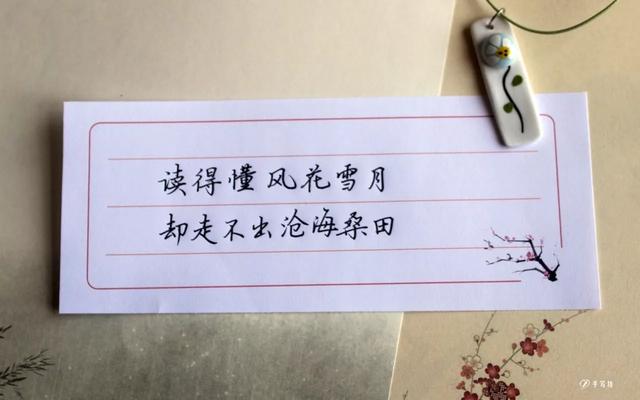 读得懂风花雪月
却走不出沧海桑田
手写族